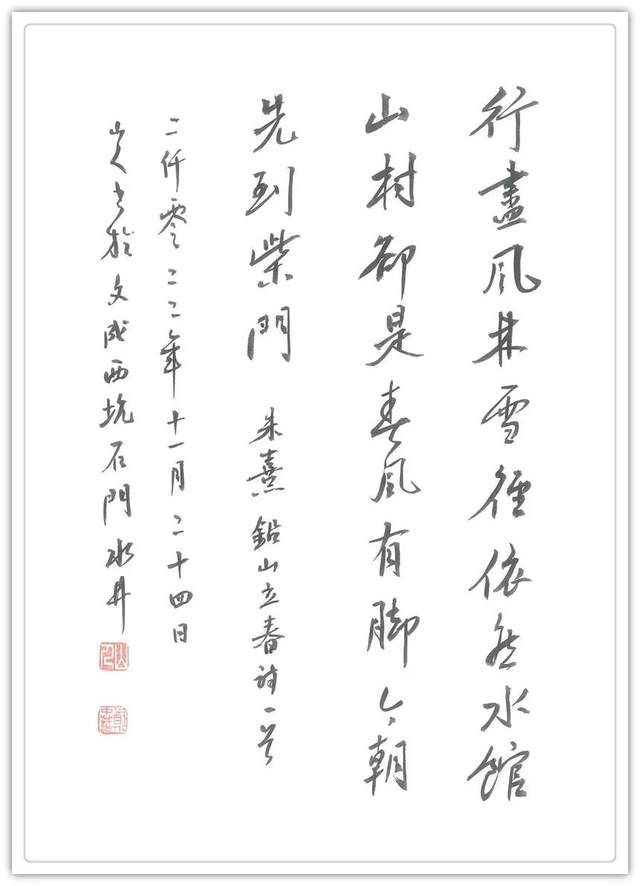 行盡風林雪徑依然水館
山村卻是春風有脚今朝
先到柴門 朱熹鉛山立春詩一首
二仟零二二年十一月二十四日
山人书於文成西坑石門水井
山人